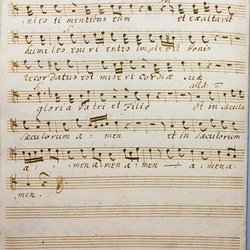 :entes ti mentibus eum et exaltavit
humiles esuri entes implevit bonis
recordatus est miseri cordiæ suæ
all:
gloria Patri et Filio et in sæcula
sæculorum a: men et in sæculorum
a: :men amen amen — amen a:
men.